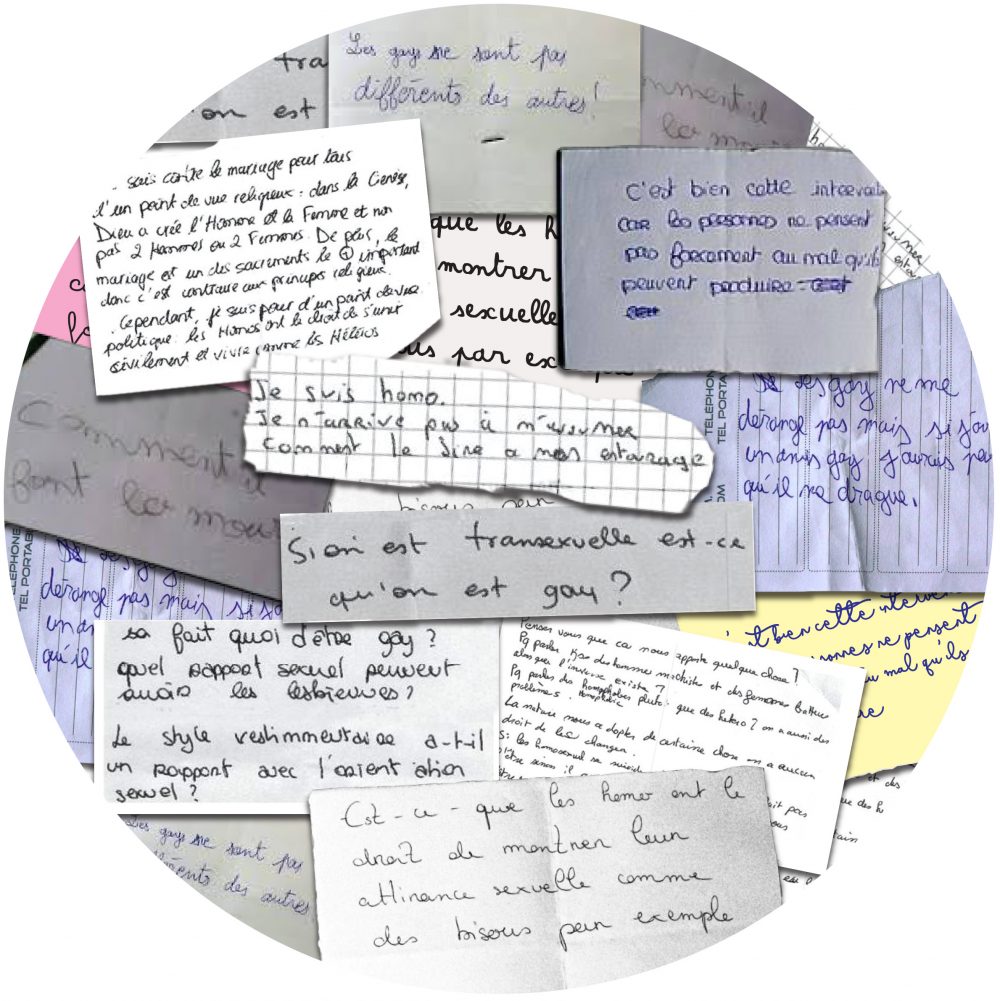 tra
on est
Les gays ne sont pas
différents des autres!
mment il
la mou
. suis contre le mariage pour tous
d'un point de vue religieux : dans la Genèse,
Dieu a créé l'Homme et la Femme et non
pas 2 Hommes ou 2 Femmes. De plus, le
mariage est un des sacrements le + important
donc c'est contraire aux principes religieux.
. Cependant, je suis pour d'un point de vue
politique : les Homos ont le droit de s'unir
civilement et vivre comme les Hétéros
que les h
montrer
sexuelle
par ex
C'est bien cette intervent
car les personnes ne pensent
pas forcement au mal qu'ils
peuvent produire
Je suis homo.
Je n'arrive pas à m'assumer
Comment le dire a mon entourage
TÉLÉPHONE
TEL PORTABL
ses gay ne me
dérange pas mais si j'av
un amis gay j'aurais peu
qu'il me drague.
Comment il
font la mour
bisous
Si on est transexuelle est-ce
qu'on est gay ?
TÉLÉPHONE
TEL PORTABL
dérange pas mais si j'a
un am
qu'il
sa fait quoi d'être gay ?
quel rapport sexuel peuvent
avoir les lesbiennes ?
Le style vestimmentaire a-t-il
un rapport avec l'orient ation
sexuel ?
Penser vous que ca nous apporte quelque chose ?
Pq parler que des hommes machiste et des femmes battus
alors que l'inverse existe ?
Pq parler des homophobes plutot que des hetero ? on a aussi des
problèmes.
La nature nous a dopter de certaine chose on a aucun
droit de les changer.
les homosexuel se suicide
t bien cette interven
sonnes ne pensent
au mal qu'ils
Les gays ne sont pas
férents des autres
Est-ce-que les homo ont le
droit de montrer leur
attirance sexuelle comme
des bisous par exemple